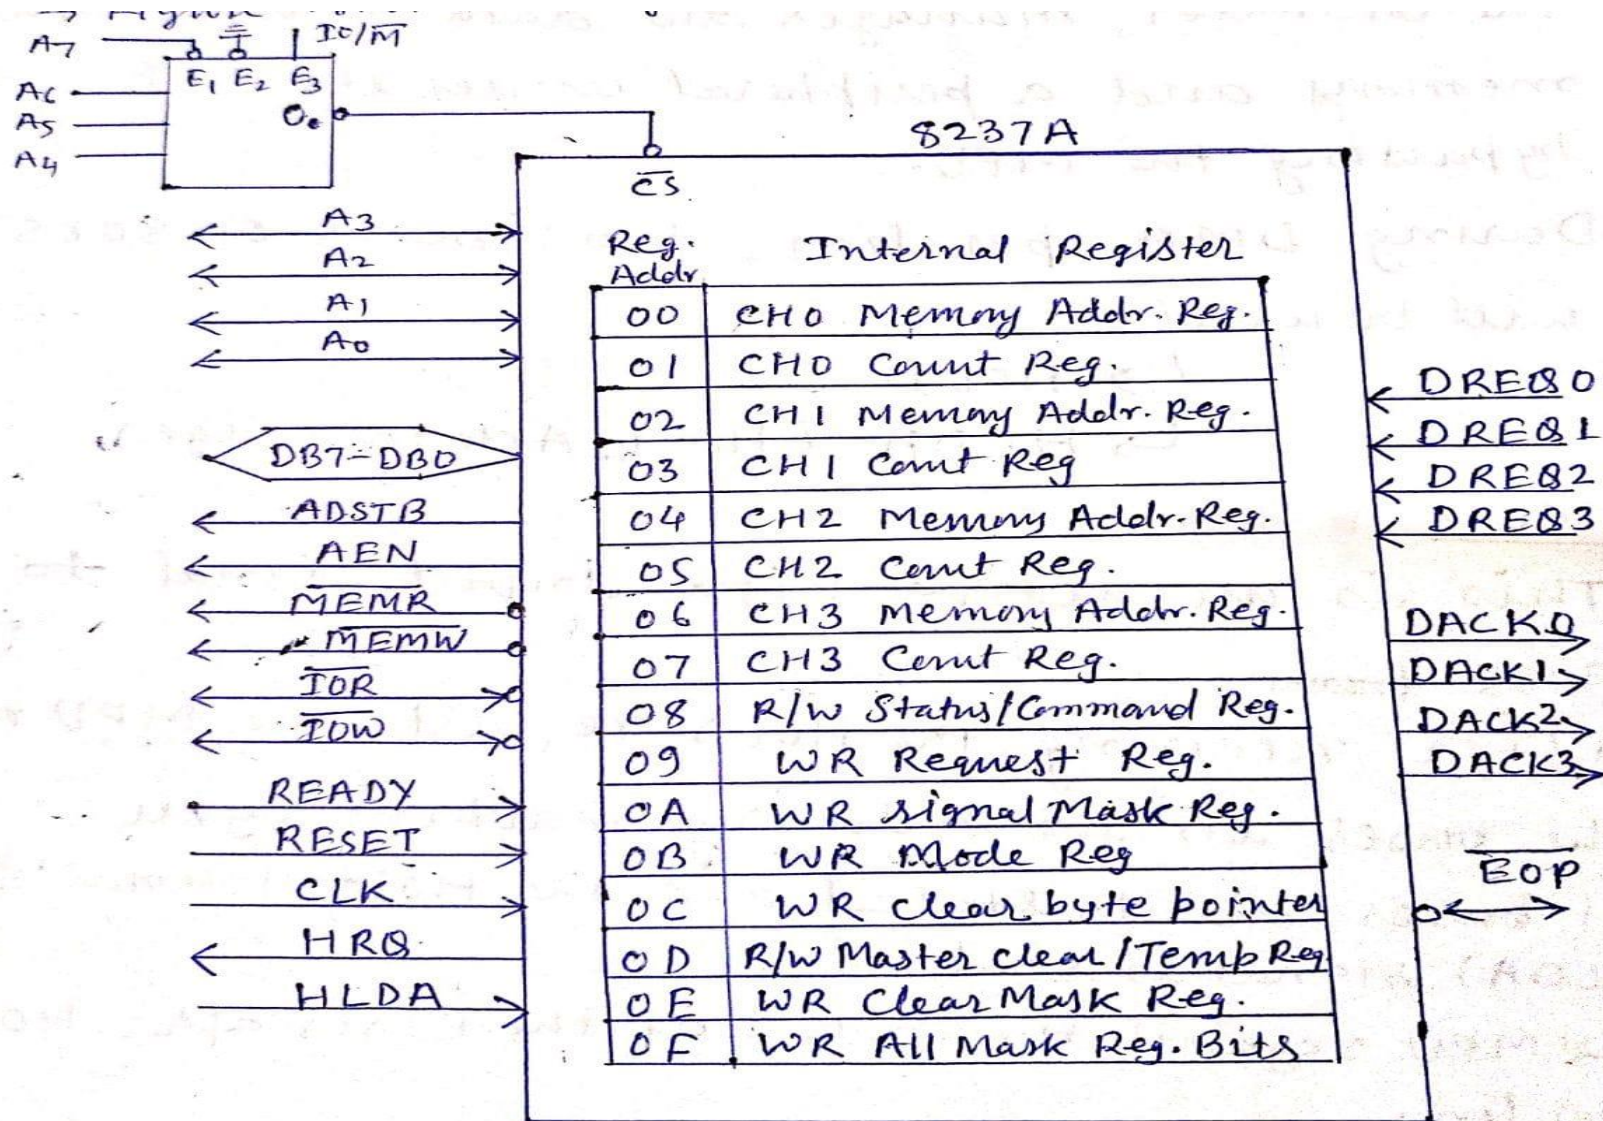 IO/M̅
A7
E1 E2 E3
A6
A5
A4
O0
8237A
C̅S̅
A3
A2
A1
A0
DB7-DB0
ADSTB
AEN
M̅E̅M̅R̅
M̅E̅M̅W̅
I̅O̅R̅
I̅O̅W̅
READY
RESET
CLK
HRQ
HLDA
Reg. Addr Internal Register
00 CH0 Memory Addr. Reg.
01 CH0 Count Reg.
02 CH1 Memory Addr. Reg.
03 CH1 Count Reg
04 CH2 Memory Addr. Reg.
05 CH2 Count Reg.
06 CH3 Memory Addr. Reg.
07 CH3 Count Reg.
08 R/W Status/Command Reg.
09 WR Request Reg.
0A WR signal Mask Reg.
0B WR Mode Reg
0C WR clear byte pointer
0D R/W Master clear/Temp Reg
0E WR Clear Mask Reg.
0F WR All Mask Reg. Bits
DREQ0
DREQ1
DREQ2
DREQ3
DACK0
DACK1
DACK2
DACK3
E̅O̅P̅